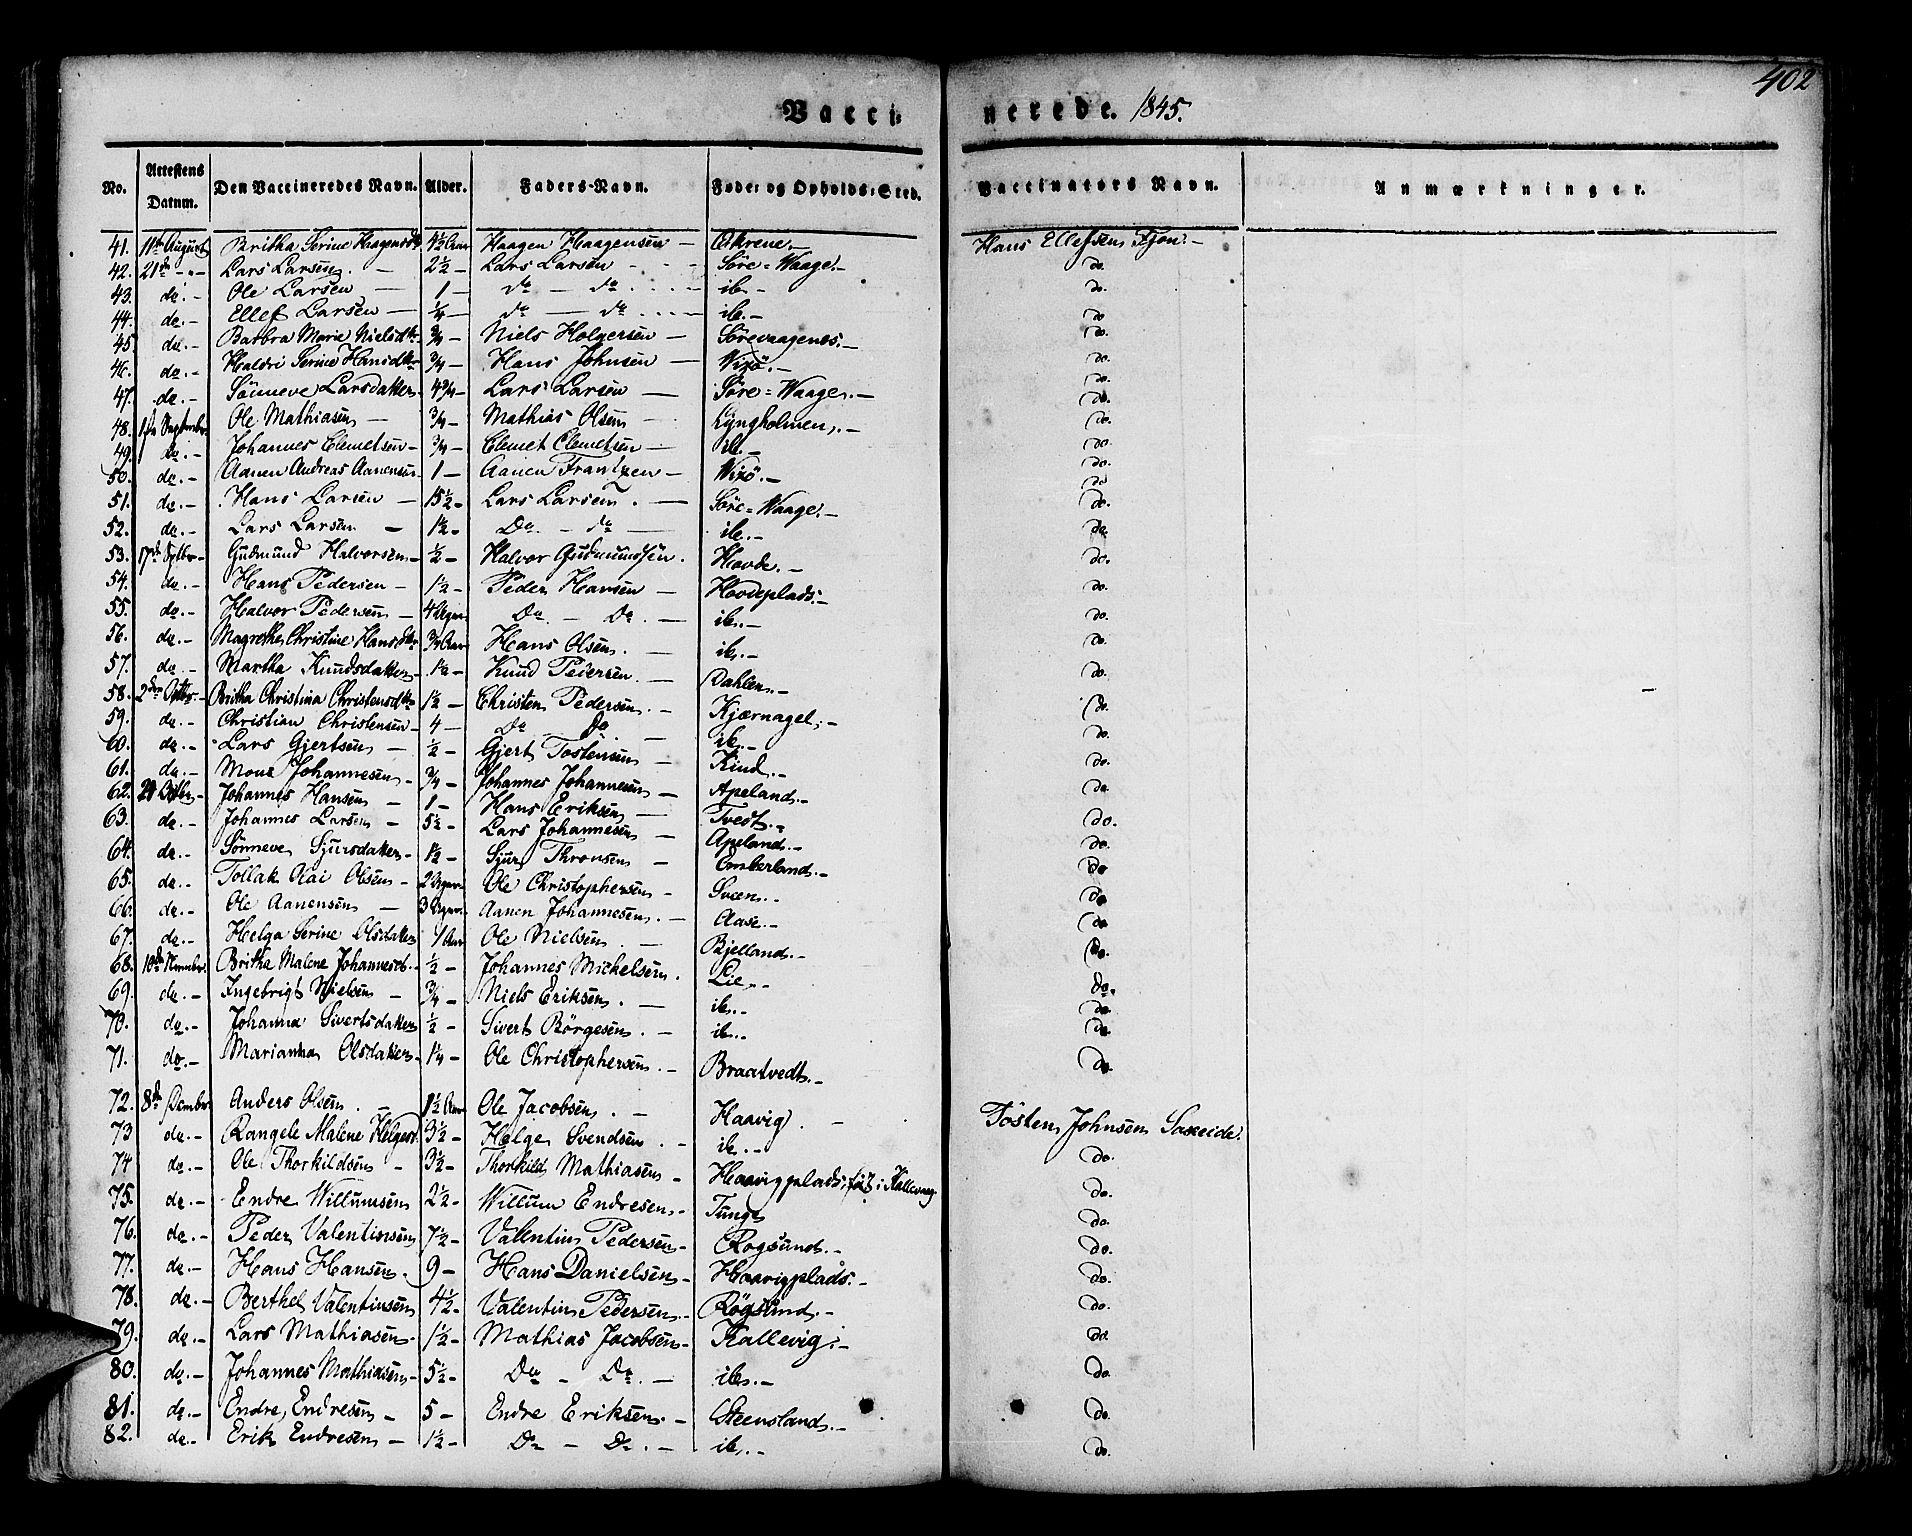 402
Vacci= nerede. 1845.
No. Attestens Datum. Den Vaccineredes Navn. Alder. Faders-Navn. Føde- og Opholds-Sted. Vaccinators Navn. Anmærkninger.
41. 11te August Britha Serine Haagensd. 4½ Aar Haagen Haagensen — Økrene. — Hans Ellefsen Fjon. —
42. 21de — Lars Larsen. — 2½ — Lars Larsen — Søre=Waage. — do.
43. do. — Ole Larsen — 1 — do — do. — ib. — do.
44. do. — Ellef Larsen — ¼ — do — do. — ib. — do
45. do. — Barbra Marie Nielsdtr. ¾ — Niels Holgersen — Sørevaagenes. — do.
46. do. — Haldri Serine Hansdtr ¾ — Hans Johnsen — Wixø. — do.
47. do. — Sønneve Larsdatter 4¾ — Lars Larsen — Søre=Waage. — do.
48. 1ste September Ole Mathiasen — ¾ — Mathias Olsen — Lyngholmen. — do.
49. do. — Johannes Clemetsen — ¾ — Clemet Clemetsen — ib. — do.
50. do. — Aanen Andreas Aanensen 1 — Aanen Frantzen — Wixø. — do.
51. do. — Hans Larsen — 15½ — Lars Larsen. — Søre=Waage. — do.
52. do. — Lars Larsen — 1½ — Do — do — ib. — do.
53. 17de Septbr — Gudmund Halvorsen — ½ — Halvor Gudmundsen. Hovde. — do.
54. do. — Hans Pedersen — 1½ — Peder Hansen — Hovdeplads. — do.
55. do. — Halvor Pedersen — 4 Uger Do. — Do. — ib. — do.
56. do. — Magrethe Christine Hansdtr ¾ Aar Hans Olsen. — ib. — do.
57. do. — Martha Knudsdatter — 1½ — Knud Pedersen. — Dahlen. — do.
58. 2den Octbr. — Britha Christina Christensdtr 1½ — Christen Pedersen. — Kjærnagel. — do.
59. do. — Christian Christensen — 4 — Do Do — ib. — do.
60. do. — Lars Gjertsen — ½ — Gjert Tostensen — Kind. — do.
61. do. — Mons Johannesen — ¾ — Johannes Johannesen — Apeland. — do.
62. 21 Octbr. — Johannes Hansen — 1 — Hans Eriksen — Tvedt. — do.
63. do. — Johannes Larsen — 5½ — Lars Johannesen — Apeland. — do.
64. do. — Sønneve Sjursdatter — 1½ — Sjur Thronsen — Emberland. — do
65. do. — Tollak Olai Olsen — 2 Uger. Ole Christophersen — Sveen. — do
66. do. — Ole Aanensen — 3 Uger. Aanen Johannesen. — Aase. — do
67. do. — Helga Serine Olsdatter 1 Aar Ole Nielsen. — Bjelland. — do.
68. 10de November. Britha Malene Johannesd. ½ — Johannes Mickelsen. Lie. — do.
69. do. — Ingebrigt Nielsen — ¾ — Niels Eriksen. — ib. — do.
70. do. — Johanna Sivertsdatter ½ — Sivert Børgesen. — ib. — do.
71. do. — Marianna Olsdatter — 1¼ — Ole Christophersen. — Braatvedt. — do.
72. 8de December Anders Olsen. — 1½ Aar Ole Jacobsen. — Haavig. — Tosten Johnsen Saxeide.
73 do. — Rangele Malene Helgesd. 3½ — Helge Svendsen. — ib. — do.
74 do. — Ole Thorkildsen — 3½ — Thorkild Mathiasen — Haavigplads, født i Kallevaag do.
75. do. — Endre Willumsen 2½ — Willum Endresen — Tunge do.
76. do. — Peder Valentinsen 7½ — Valentin Pedersen — Røgsund. — do.
77. do. — Hans Hansen. 9 — Hans Danielsen — Haavigplads. — do.
78. do. — Berthel Valentinsen 4½ — Valentin Pedersen. — Røgsund. — do.
79. do. — Lars Mathiasen — 1½ — Mathias Jacobsen — Kallevig. — do.
80. do. — Johannes Mathiasen — 5½ — Do — Do. — ib. — do.
81. do. — Endre Endresen — 5 — Endre Eriksen. — Steensland. — do.
82. do. — Erik Endresen — 1½ — Do — Do. — ib. — do.